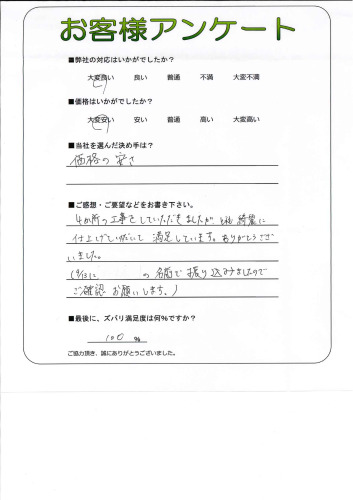 お客様アンケート
■弊社の対応はいかがでしたか？
大変良い 良い 普通 不満 大変不満
■価格はいかがでしたか？
大変安い 安い 普通 高い 大変高い
■当社を選んだ決め手は？
価格の安さ
■ご感想・ご要望などをお書き下さい。
4か所の工事をしていただきましたが、とても綺麗に
仕上げていただいて満足しています。ありがとうござ
いました。
(8/13に の名前で振り込みましたので
ご確認お願いします。)
■最後に、ズバリ満足度は何%ですか？
100 %
ご協力頂き、誠にありがとうございました。